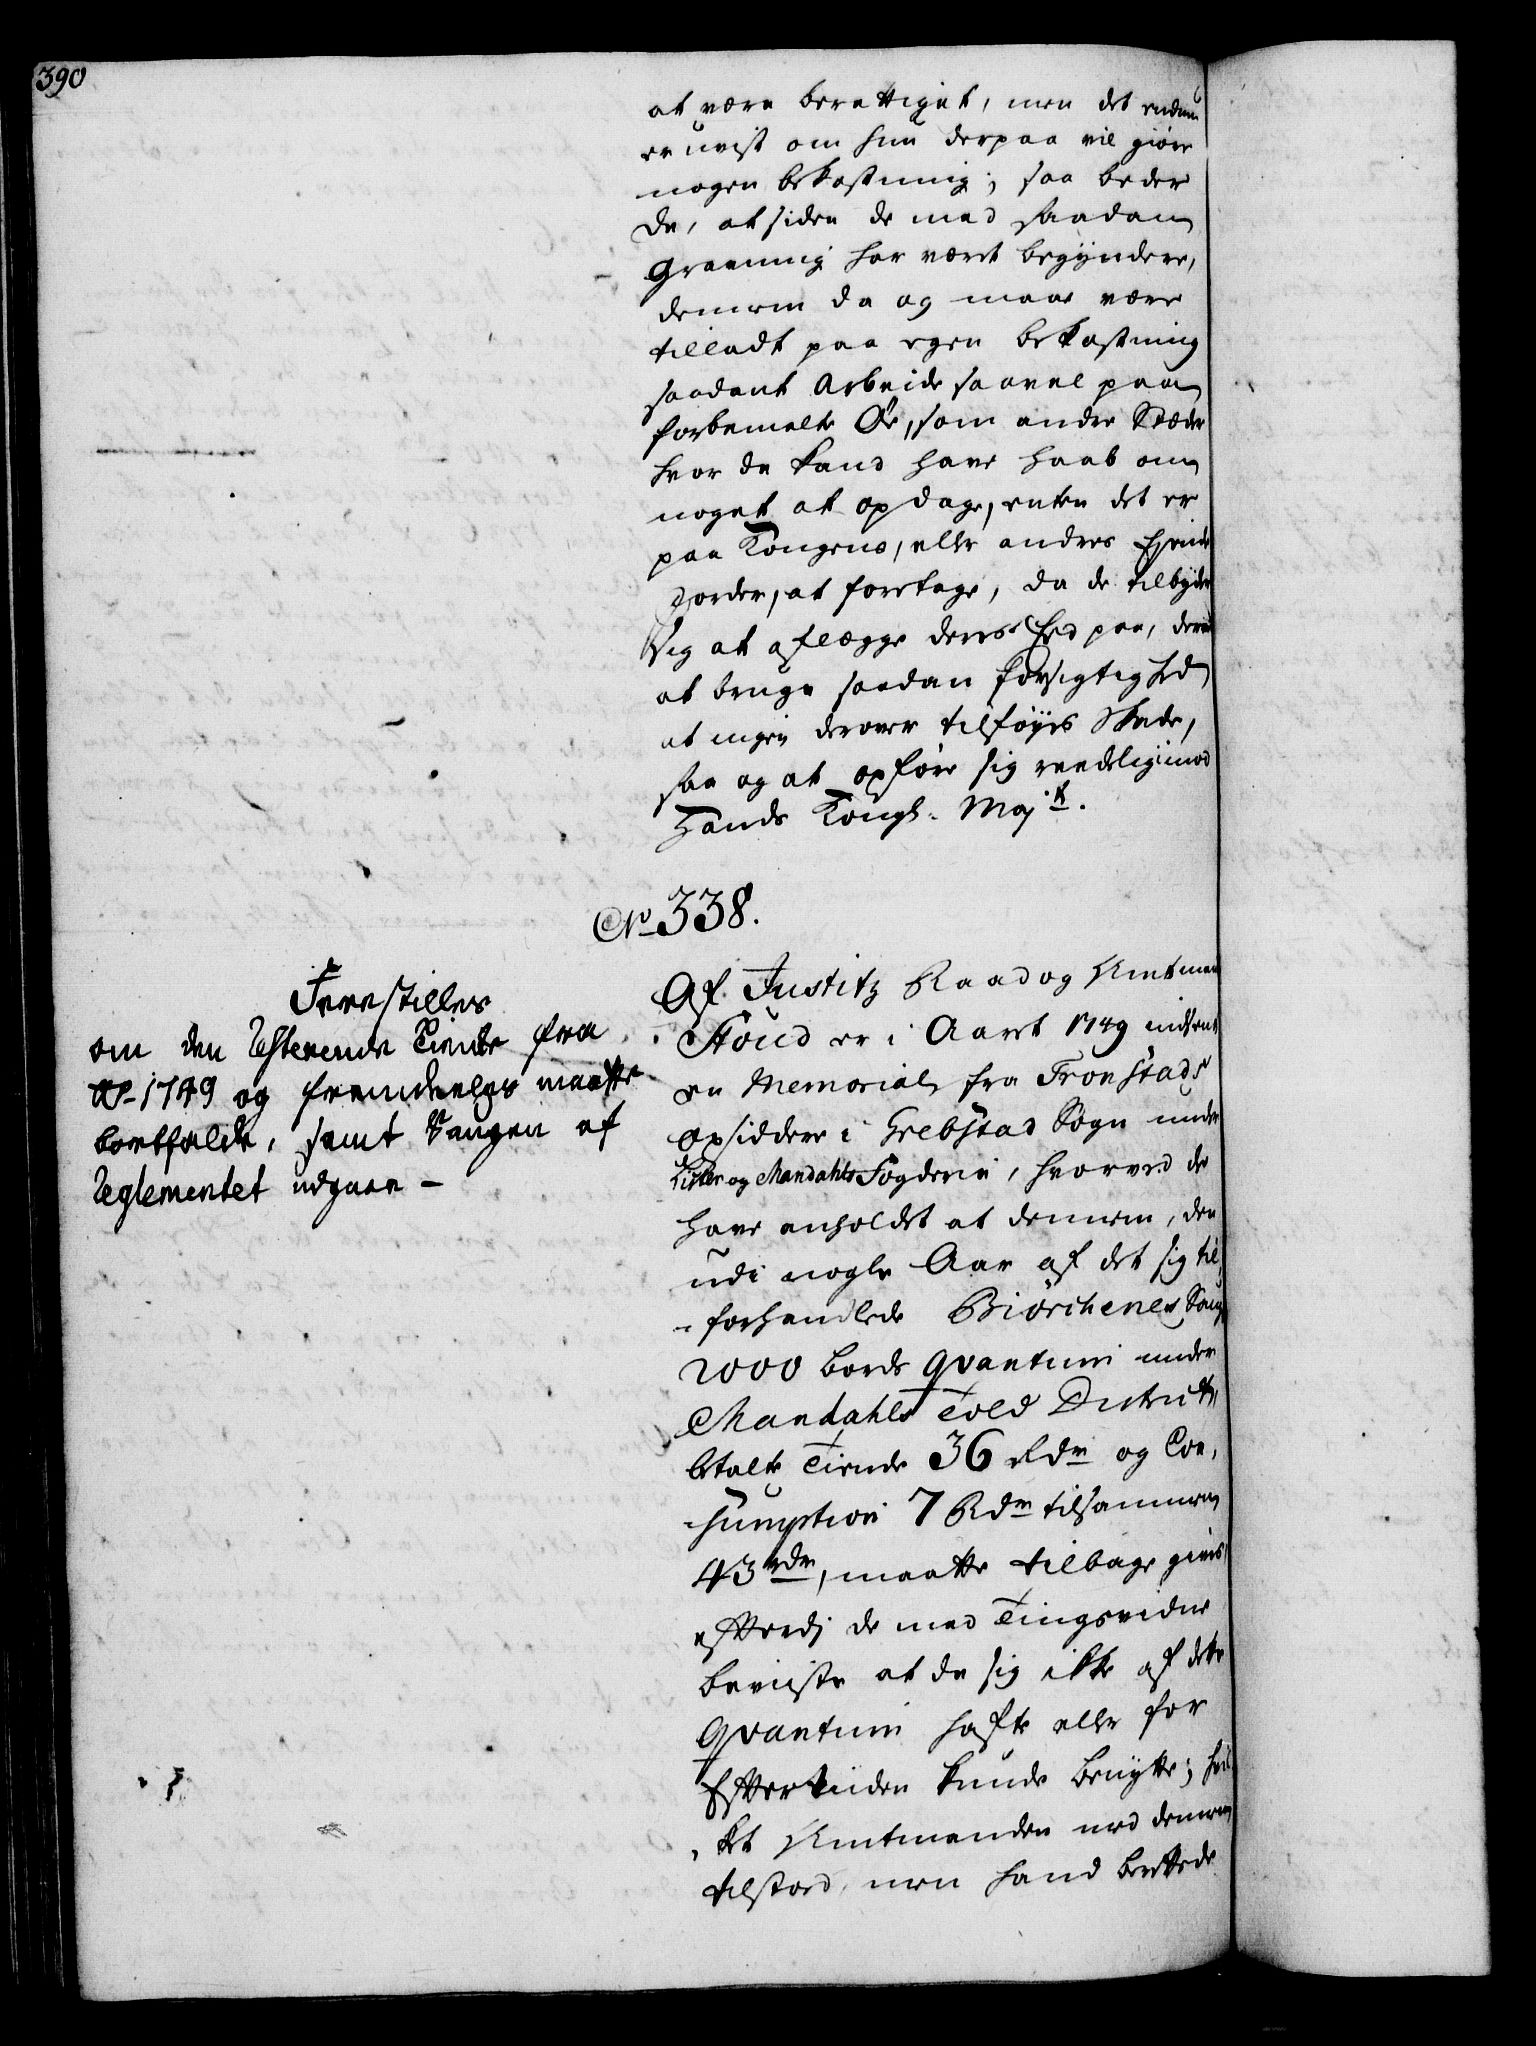 390
at være berettiget, men det endnu
er uvist om hun derpaa vil giøre
nogen bekostning; saa beder
de, at siden de med saadan
Gravning har vært begyndere,
dennem da og maae være
tilladt paa egen bekostning
saadant Arbeide saavel paa
forbemelte Øe, som andre Stæder
hvor de kand have haab om
noget at opdage, enten det er
paa Kongens, eller andres Eyendes
Jorder, at foretage, da de tilbyder
sig at aflægge deres Eed paa, derved
at bruge saadan forsigtighed
at ingen derover tilføyes Skade,
saa og at opføre sig reedelig imod
Hands Kongl. Majt.
No 338.
Forestilles
om den resterende Tiende fra
Ao 1749 og fremdeeles maatte
bortfalde, samt Saugen af
Reglementet udgaae -
Af Justitz Raad og Amtmand
Stoud er i Aaret 1749 indsendt
en Memorial fra Tronstads
opsiddere i Grebstad Sogn under
Lister og Mandahls Fogderie, hvorved de
have anholdet at dennem, den
udi nogle Aar af det sig til
forhandlede Biørchenes Saug
2000 bords Qvantum under
Mandahls Told District
betalte Tiende 36 Rdr og Con-
sumption 7 Rdr tilsammen
43 rdr, maatte tilbage gives
efterdi de med Tingsvidne
beviste at de sig ikke af dette
Qvantum hafte eller for
Eftertiiden kunde benytte; hvil
ket Amtmanden med dennem
tilstoed, men hand berettede